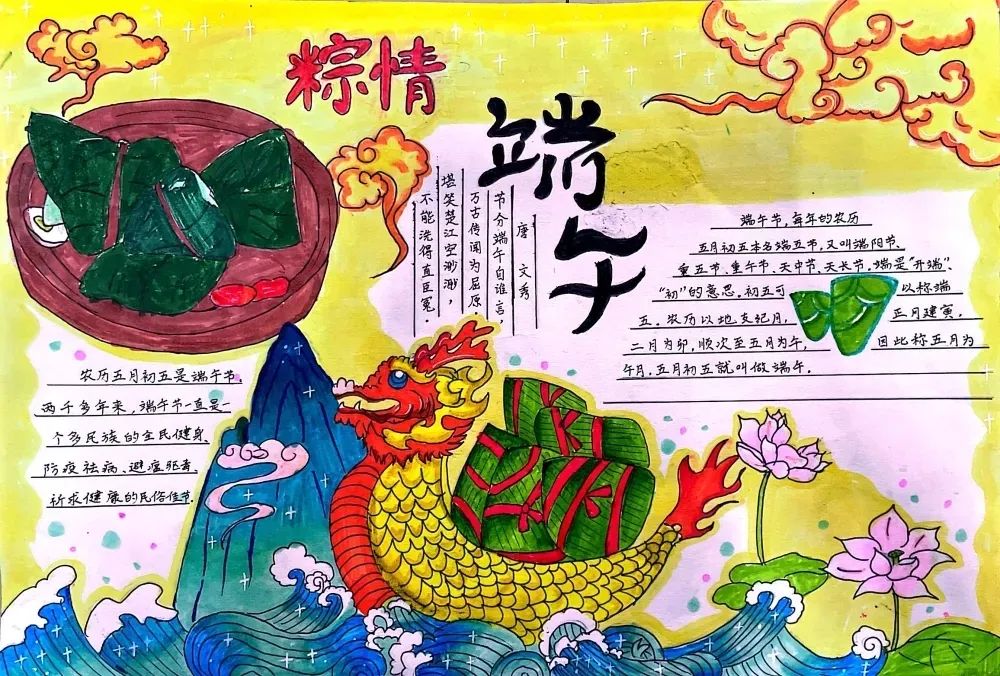 粽情
端午
唐 文秀
节分端午自谁言
万古传闻为屈原。
堪笑楚江空渺渺，
不能洗得直臣冤。
端午节，每年的农历
五月初五本名端五节，又叫端阳节、
重五节、重午节、天中节、天长节，端是“开端”、
“初”的意思。初五可 以称端
五。农历以地支纪月， 正月建寅，
二月为卯，顺次至五月为午， 因此称五月为
午月，五月初五就叫做端午。
农历五月初五是端午节，
两千多年来，端午节一直是一
个多民族的全民健身、
防疫祛病、避瘟驱毒、
祈求健康的民俗佳节。